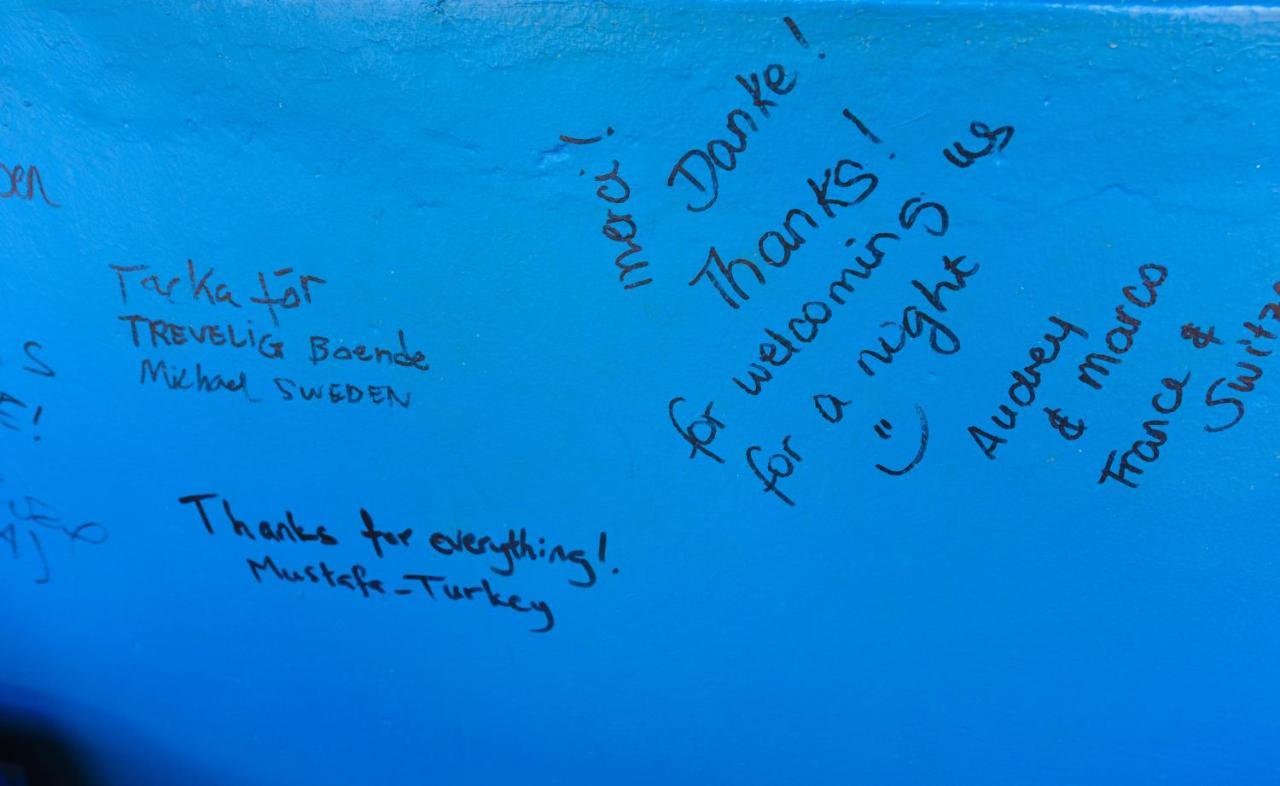 Tacka för
TREVELIG Boende
Michael SWEDEN
Thanks for everything!
Mustafa-Turkey
merci!
Danke!
Thanks!
for welcoming us
for a night
Audrey
& Marco
France &